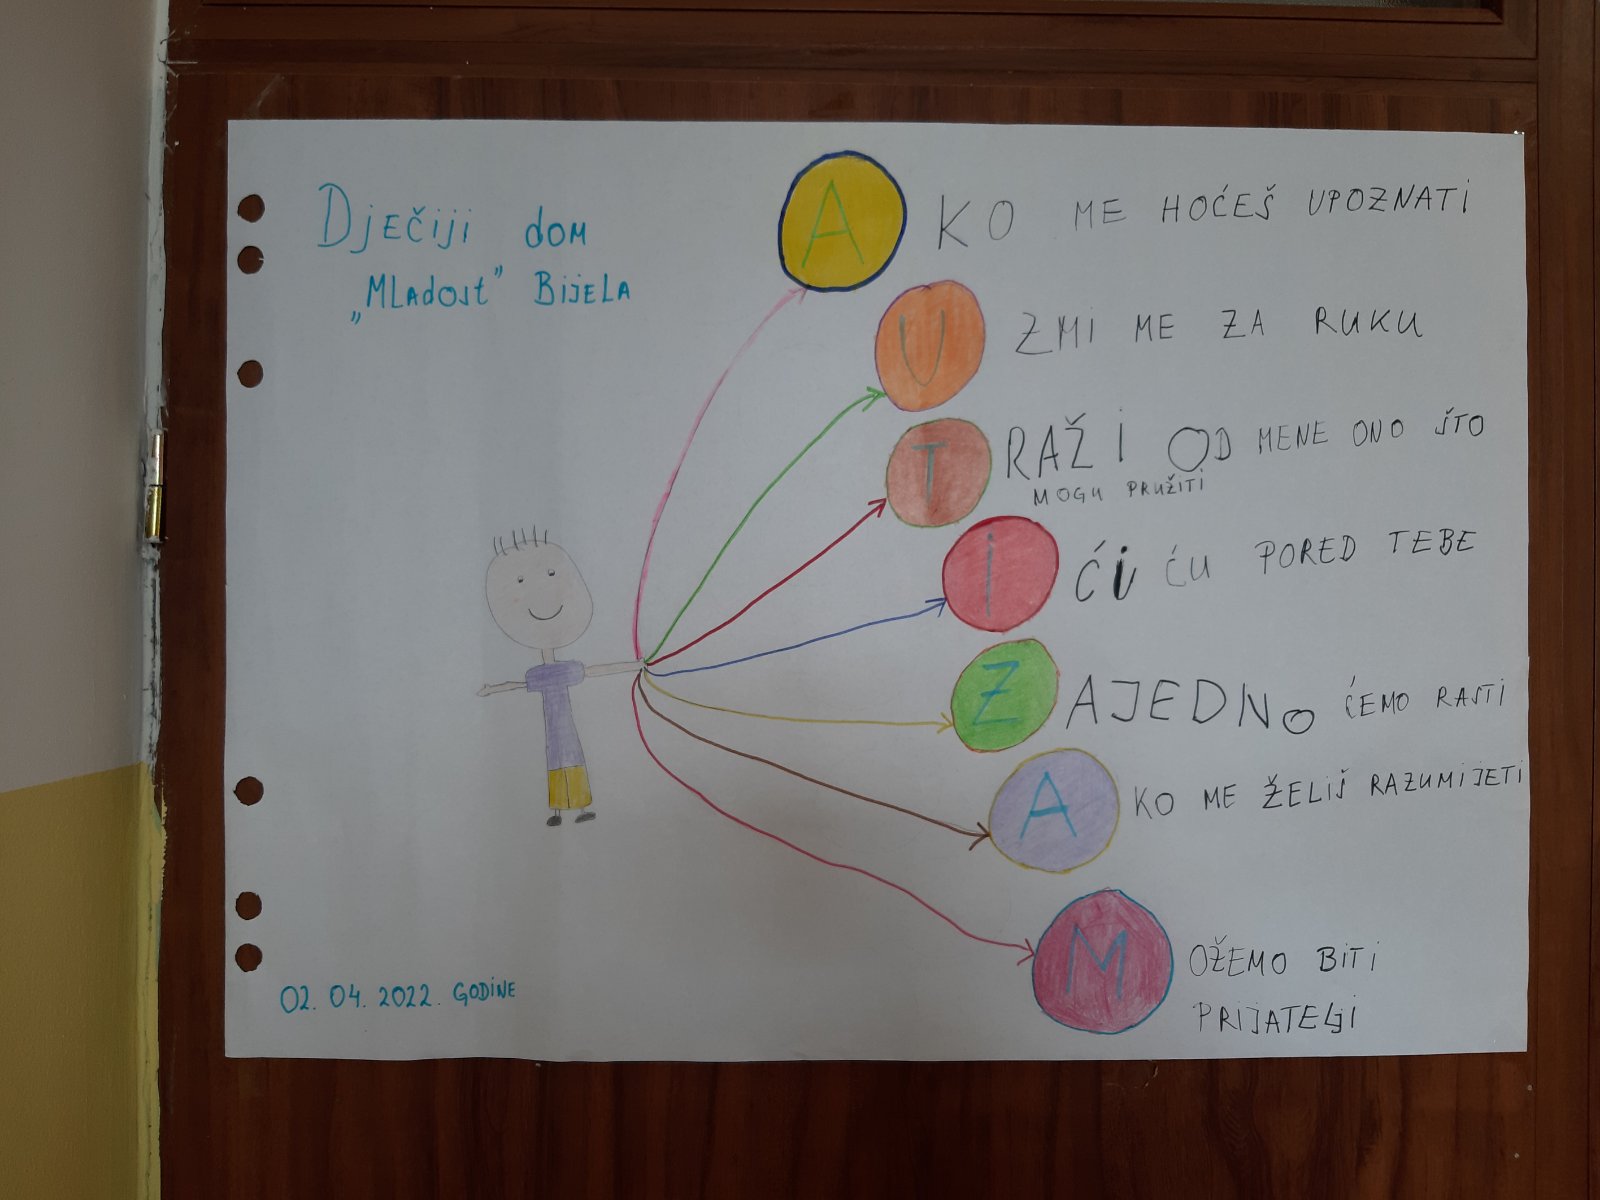 Dječiji dom
„Mladost” Bijela
AKO ME HOĆEŠ UPOZNATI
UZMI ME ZA RUKU
TRAŽI OD MENE ONO ŠTO
MOGU PRUŽITI
IĆI ĆU PORED TEBE
ZAJEDNO ĆEMO RASTI
AKO ME ŽELIŠ RAZUMIJETI
MOŽEMO BITI
PRIJATELJI
02.04.2022. GODINE